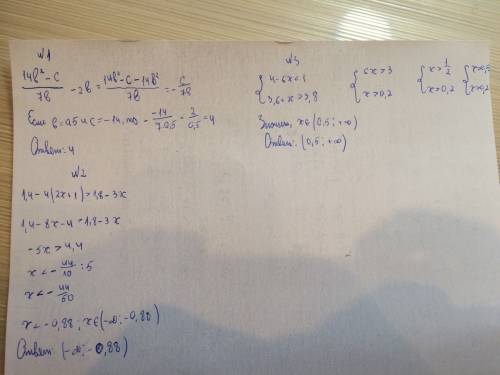 N1
(14b² - c)/7b - 2b = (14b² - c - 14b²)/7b = - c/7b
Если b = 0,5 и c = -14, то - (-14)/(7·0,5) = 2/0,5 = 4
Ответ: 4
N2
1,4 - 4(2x+1) > 1,8 - 3x
1,4 - 8x - 4 > 1,8 - 3x
-5x > 4,4
x < - 44/10 : 5
x < - 44/50
x < -0,88; x ∈ (-∞; -0,88)
Ответ: (-∞; -0,88)
N3
{ 4 - 6x < 1 { 6x > 3 { x > 1/2 { x > 0,5
{ 3,6 + x > 3,8 { x > 0,2 { x > 0,2 { x > 0,2
Значит, x ∈ (0,5; +∞)
Ответ: (0,5; +∞)